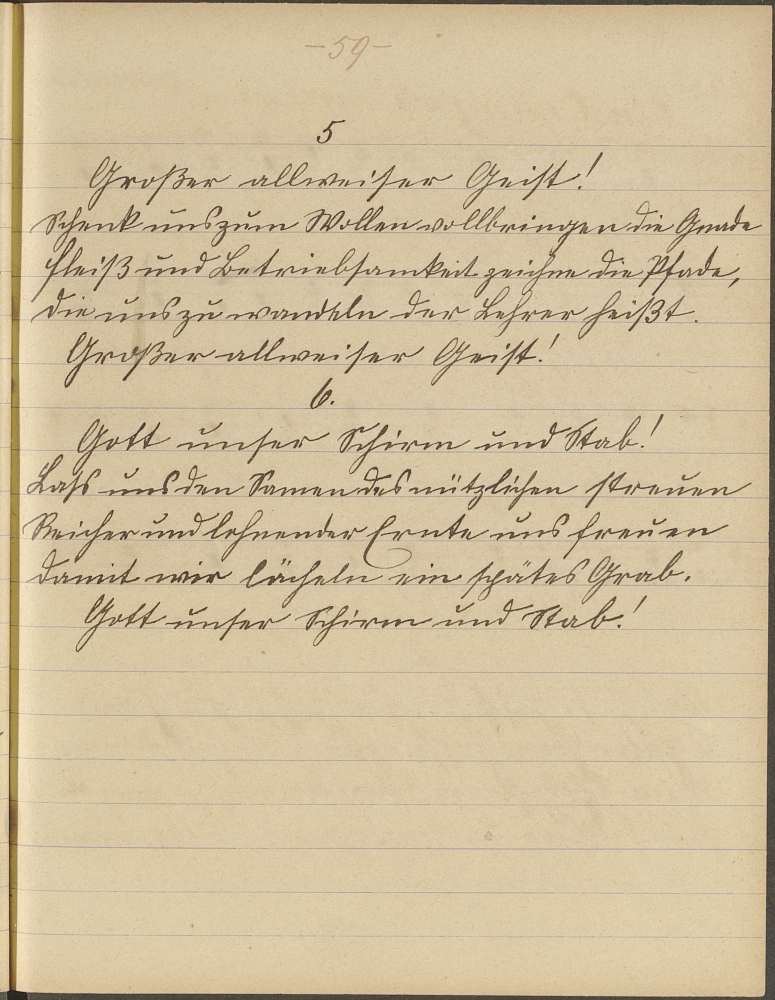 -59-
5
Großer allweiser Geist!
Schenk uns zum Wollen vollbringen die Gnade
Fleiß und Betriebsamkeit zeichne die Pfade,
die uns zu wandeln der Lehrer heißt.
Großer allweiser Geist!
6.
Gott unser Schirm und Stab!
Lass uns den Samen des nützlichen streuen
Reicher und lohnender Ernte uns freuen
damit wir lächeln ein spätes Grab.
Gott unser Schirm und Stab!